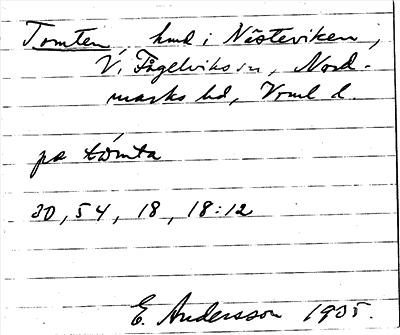 Tomten, hmd i Nästeviken,
V. Fågelviks sn, Nord-
marks hd, Vrml d.
på tòmta
30, 54, 18, 18:12
E. Andersson 1935.